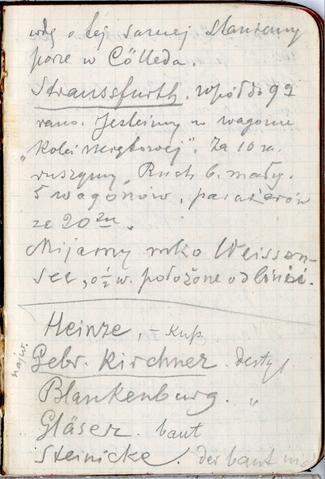 o tej samej
porze w Cölleda.
Straussfurth. wpół do 9ej
rano. Jesteśmy w wagonie
„Kolei
ruszymy. Ruch b. mały.
5 wagonów, pasażerów
ze 20tu.
Mijamy mko Weissen-
see, położone od linii.
Heinze, - Kup.
Gebr. Kirchner. destyl
Blankenburg. „
Gläser baut
Steinicke. der baut